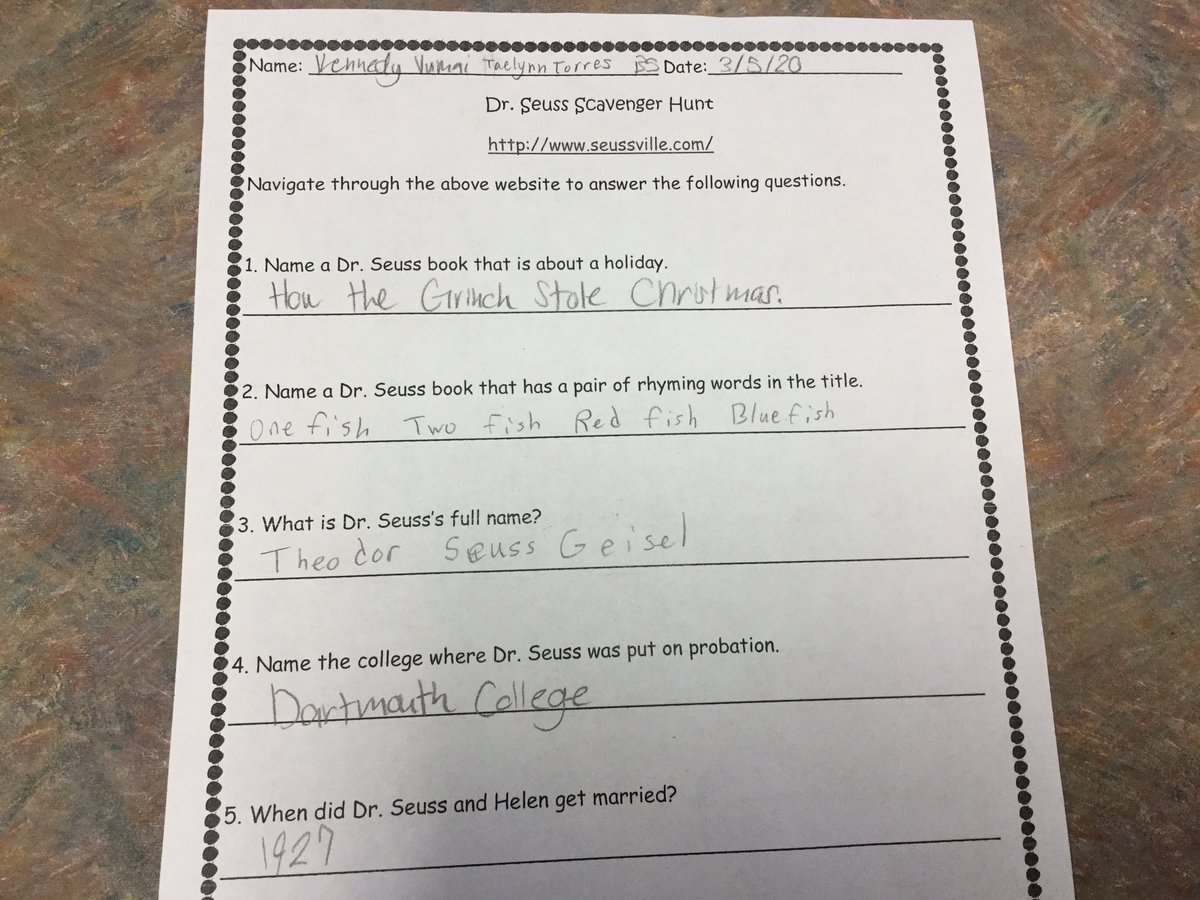 Name: Kennedy Yumai Jaelynn Torres BS Date: 3/5/20
Dr. Seuss Scavenger Hunt
http://www.seussville.com/
Navigate through the above website to answer the following questions.
1. Name a Dr. Seuss book that is about a holiday.
How the Grinch Stole Christmas.
2. Name a Dr. Seuss book that has a pair of rhyming words in the title.
One fish Two fish Red fish Blue fish
3. What is Dr. Seuss's full name?
Theodor Seuss Geisel
4. Name the college where Dr. Seuss was put on probation.
Dartmouth College
5. When did Dr. Seuss and Helen get married?
1927